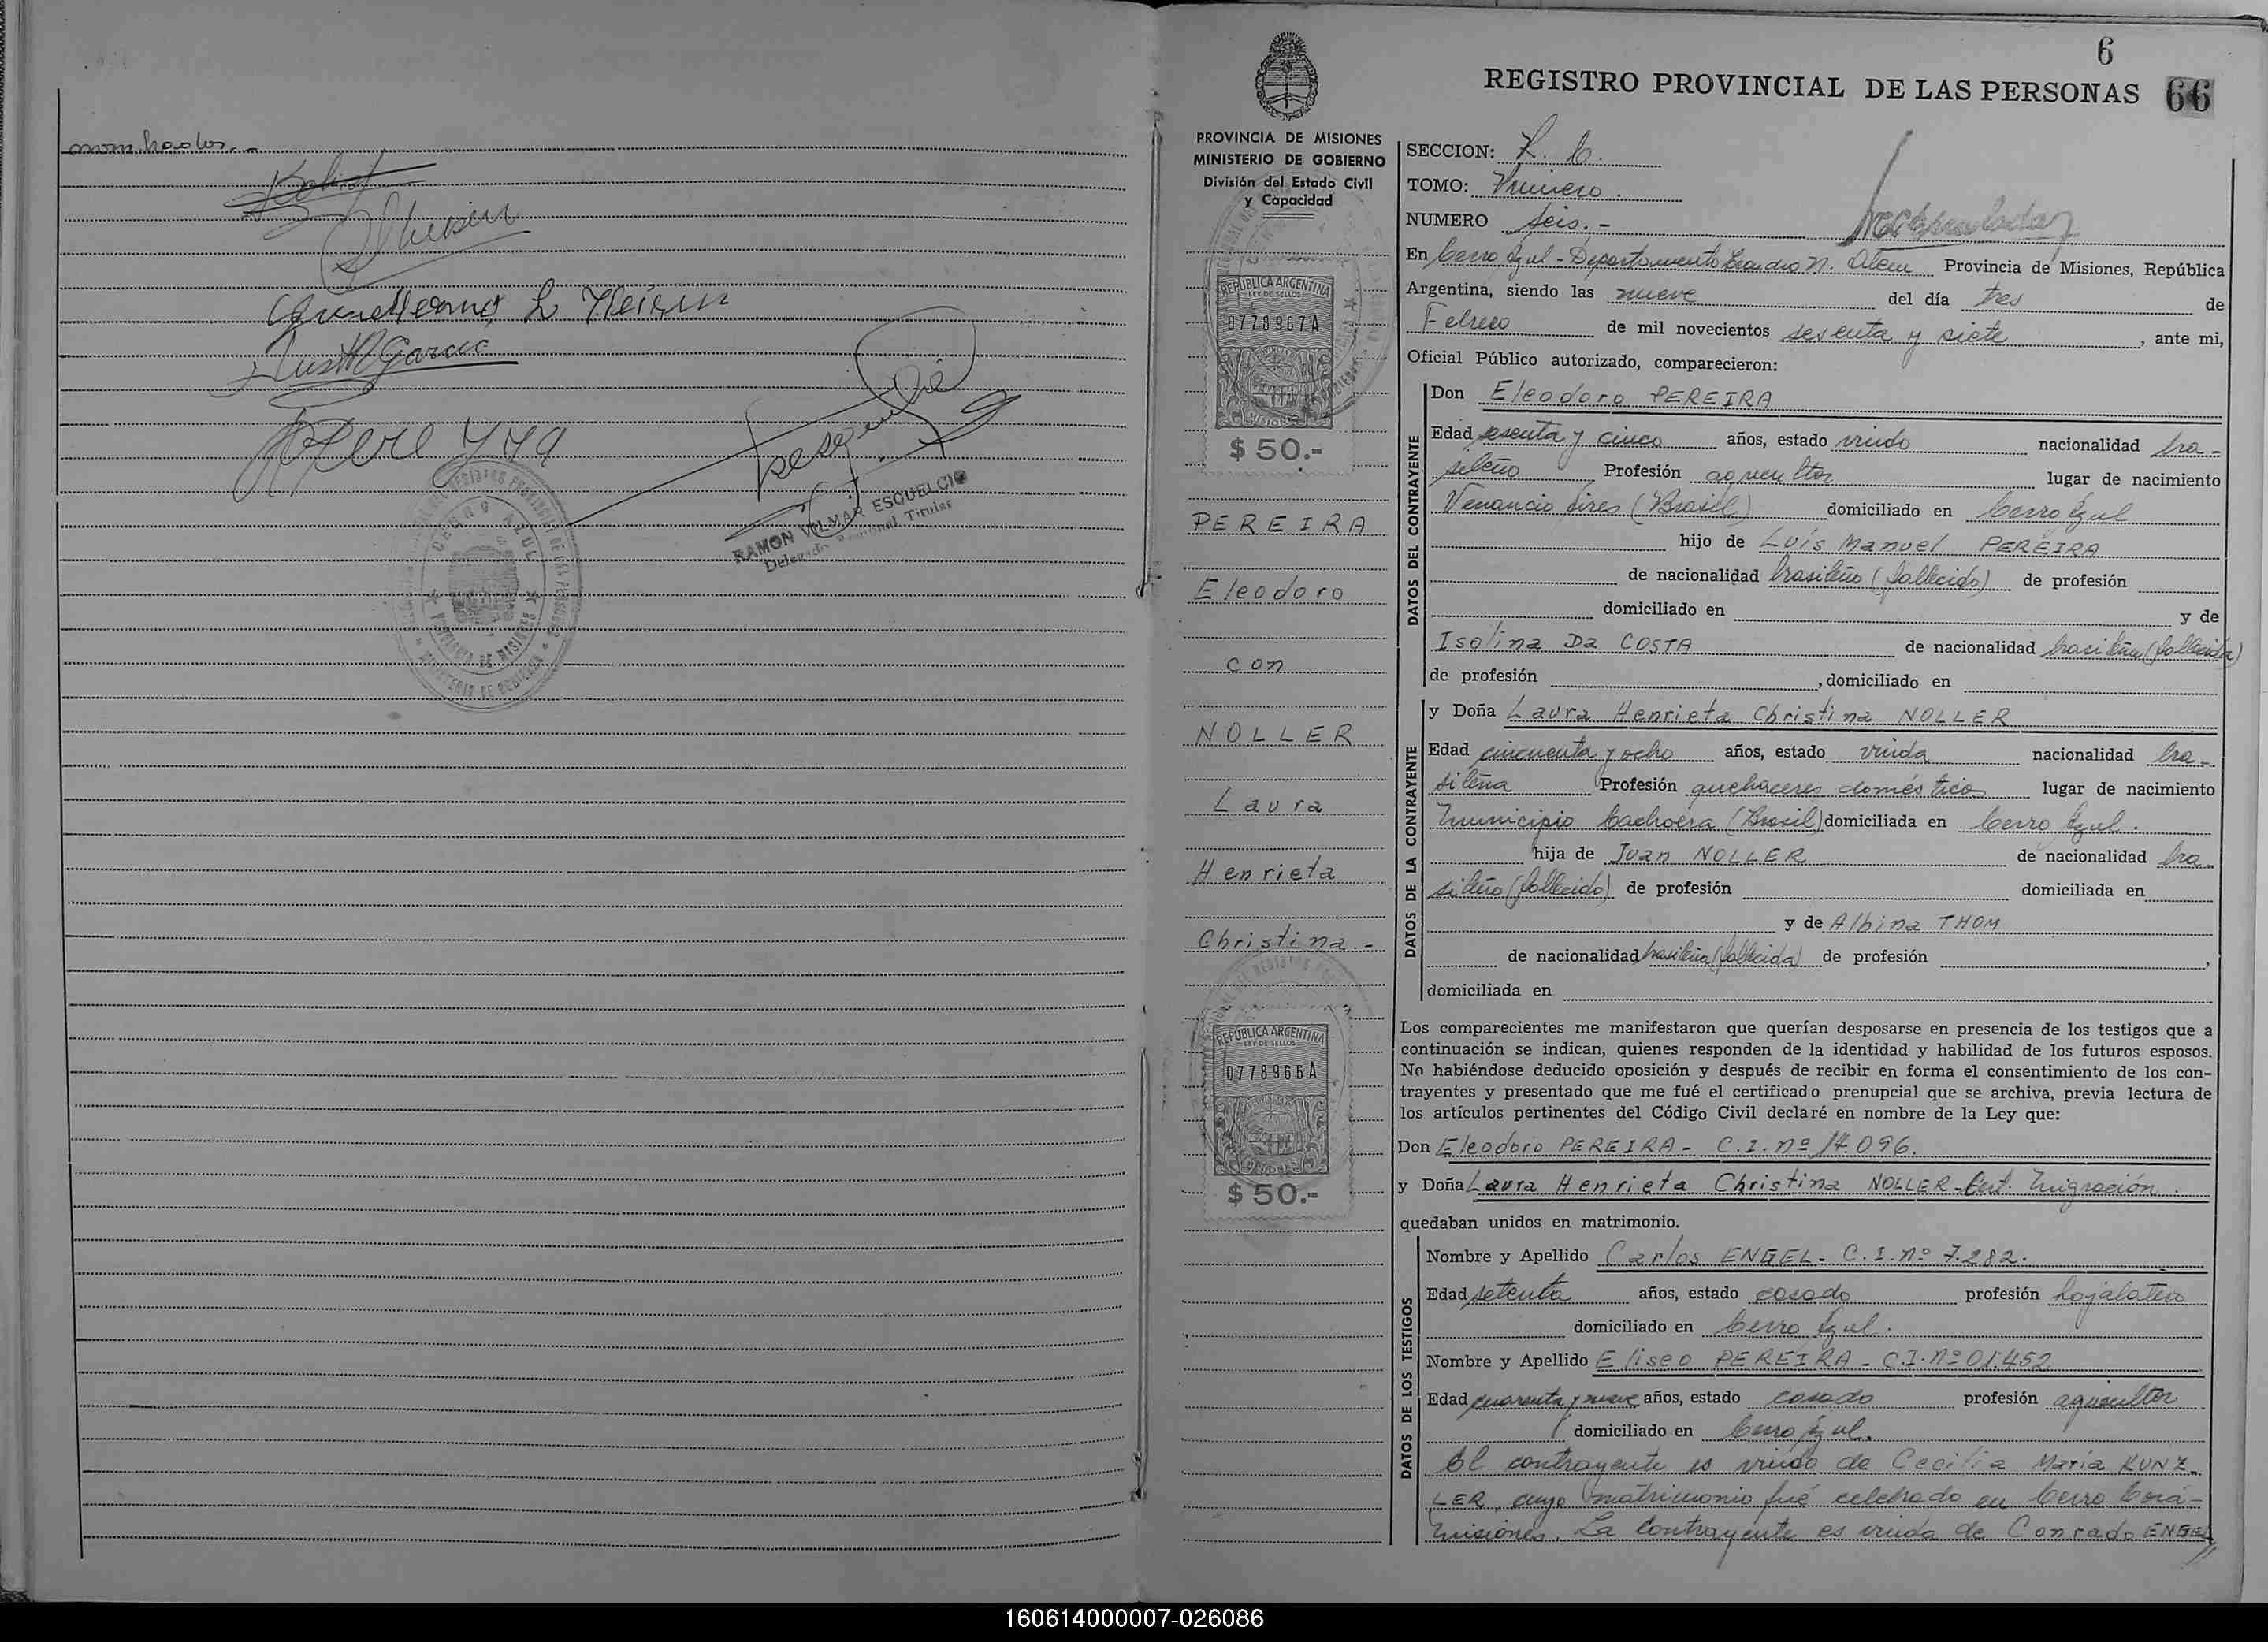 manchados.-
Guillermo L Klein
Justo H Garcia
Pereyra
RAMON VILMAR ESQUELCIO
Delegado Regional Titular
CERRO AZUL
PROVINCIA DE MISIONES
6
REGISTRO PROVINCIAL DE LAS PERSONAS 66
PROVINCIA DE MISIONES
MINISTERIO DE GOBIERNO
División del Estado Civil
y Capacidad
REPUBLICA ARGENTINA
LEY DE SELLOS
0778967A
MISIONES
$ 50.-
PEREIRA
Eleodoro
con
NOLLER
Laura
Henrieta
Christina.-
REPUBLICA ARGENTINA
LEY DE SELLOS
0778966A
$ 50.-
SECCION:
TOMO: Primero.
NUMERO seis.-
En Cerro Azul - Departamento Leandro N. Alem Provincia de Misiones, República
Argentina, siendo las nueve del día tres de
Febrero de mil novecientos sesenta y siete, ante mi,
Oficial Público autorizado, comparecieron:
DATOS DEL CONTRAYENTE
Don Eleodoro PEREIRA
Edad sesenta y cinco años, estado viudo nacionalidad bra-
sileño Profesión agricultor lugar de nacimiento
Venancio Aires (Brasil) domiciliado en Cerro Azul
hijo de Luís Manuel PEREIRA
de nacionalidad brasileño (fallecido) de profesión
domiciliado en y de
Isolina Da COSTA de nacionalidad brasileña (fallecida)
de profesión , domiciliado en
DATOS DE LA CONTRAYENTE
y Doña Laura Henrieta Christina NOLLER
Edad cincuenta y ocho años, estado viuda nacionalidad bra-
sileña Profesión quehaceres domésticos lugar de nacimiento
Municipio Cachoera (Brasil) domiciliada en Cerro Azul.
hija de Juan NOLLER de nacionalidad bra-
sileño (fallecido) de profesión domiciliada en
y de Albina THOM
de nacionalidad brasileña (fallecida) de profesión ,
domiciliada en
Los comparecientes me manifestaron que querían desposarse en presencia de los testigos que a
continuación se indican, quienes responden de la identidad y habilidad de los futuros esposos.
No habiéndose deducido oposición y después de recibir en forma el consentimiento de los con-
trayentes y presentado que me fué el certificado prenupcial que se archiva, previa lectura de
los artículos pertinentes del Código Civil declaré en nombre de la Ley que:
Don Eleodoro PEREIRA - C.I. nº 14.096.
y Doña Laura Henrieta Christina NOLLER - Cert. Migración.
quedaban unidos en matrimonio.
DATOS DE LOS TESTIGOS
Nombre y Apellido Carlos ENGEL - C.I. nº 7.282.
Edad setenta años, estado casado profesión hojalatero
domiciliado en Cerro Azul.
Nombre y Apellido Eliseo PEREIRA - C.I. nº 01.452
Edad cuarenta y nueve años, estado casado profesión agricultor
domiciliado en Cerro Azul.
El contrayente es viudo de Cecilia María KUNZ-
LER, cuyo matrimonio fué celebrado en Cerro Corá-
Misiones. La Contrayente es viuda de Conrado ENGEL
160614000007-026086